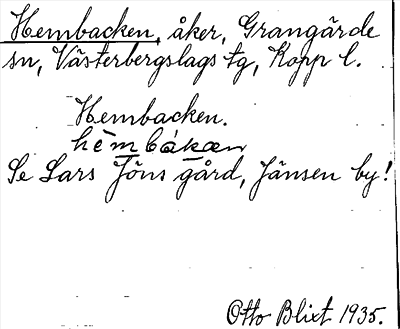 Hembacken, åker, Grangärde
sn, Västerbergslags tg, Kopp l.
Hembacken.
hèm bákan
Se Lars Jöns gård, Jänsen by!
Otto Blixt 1935.